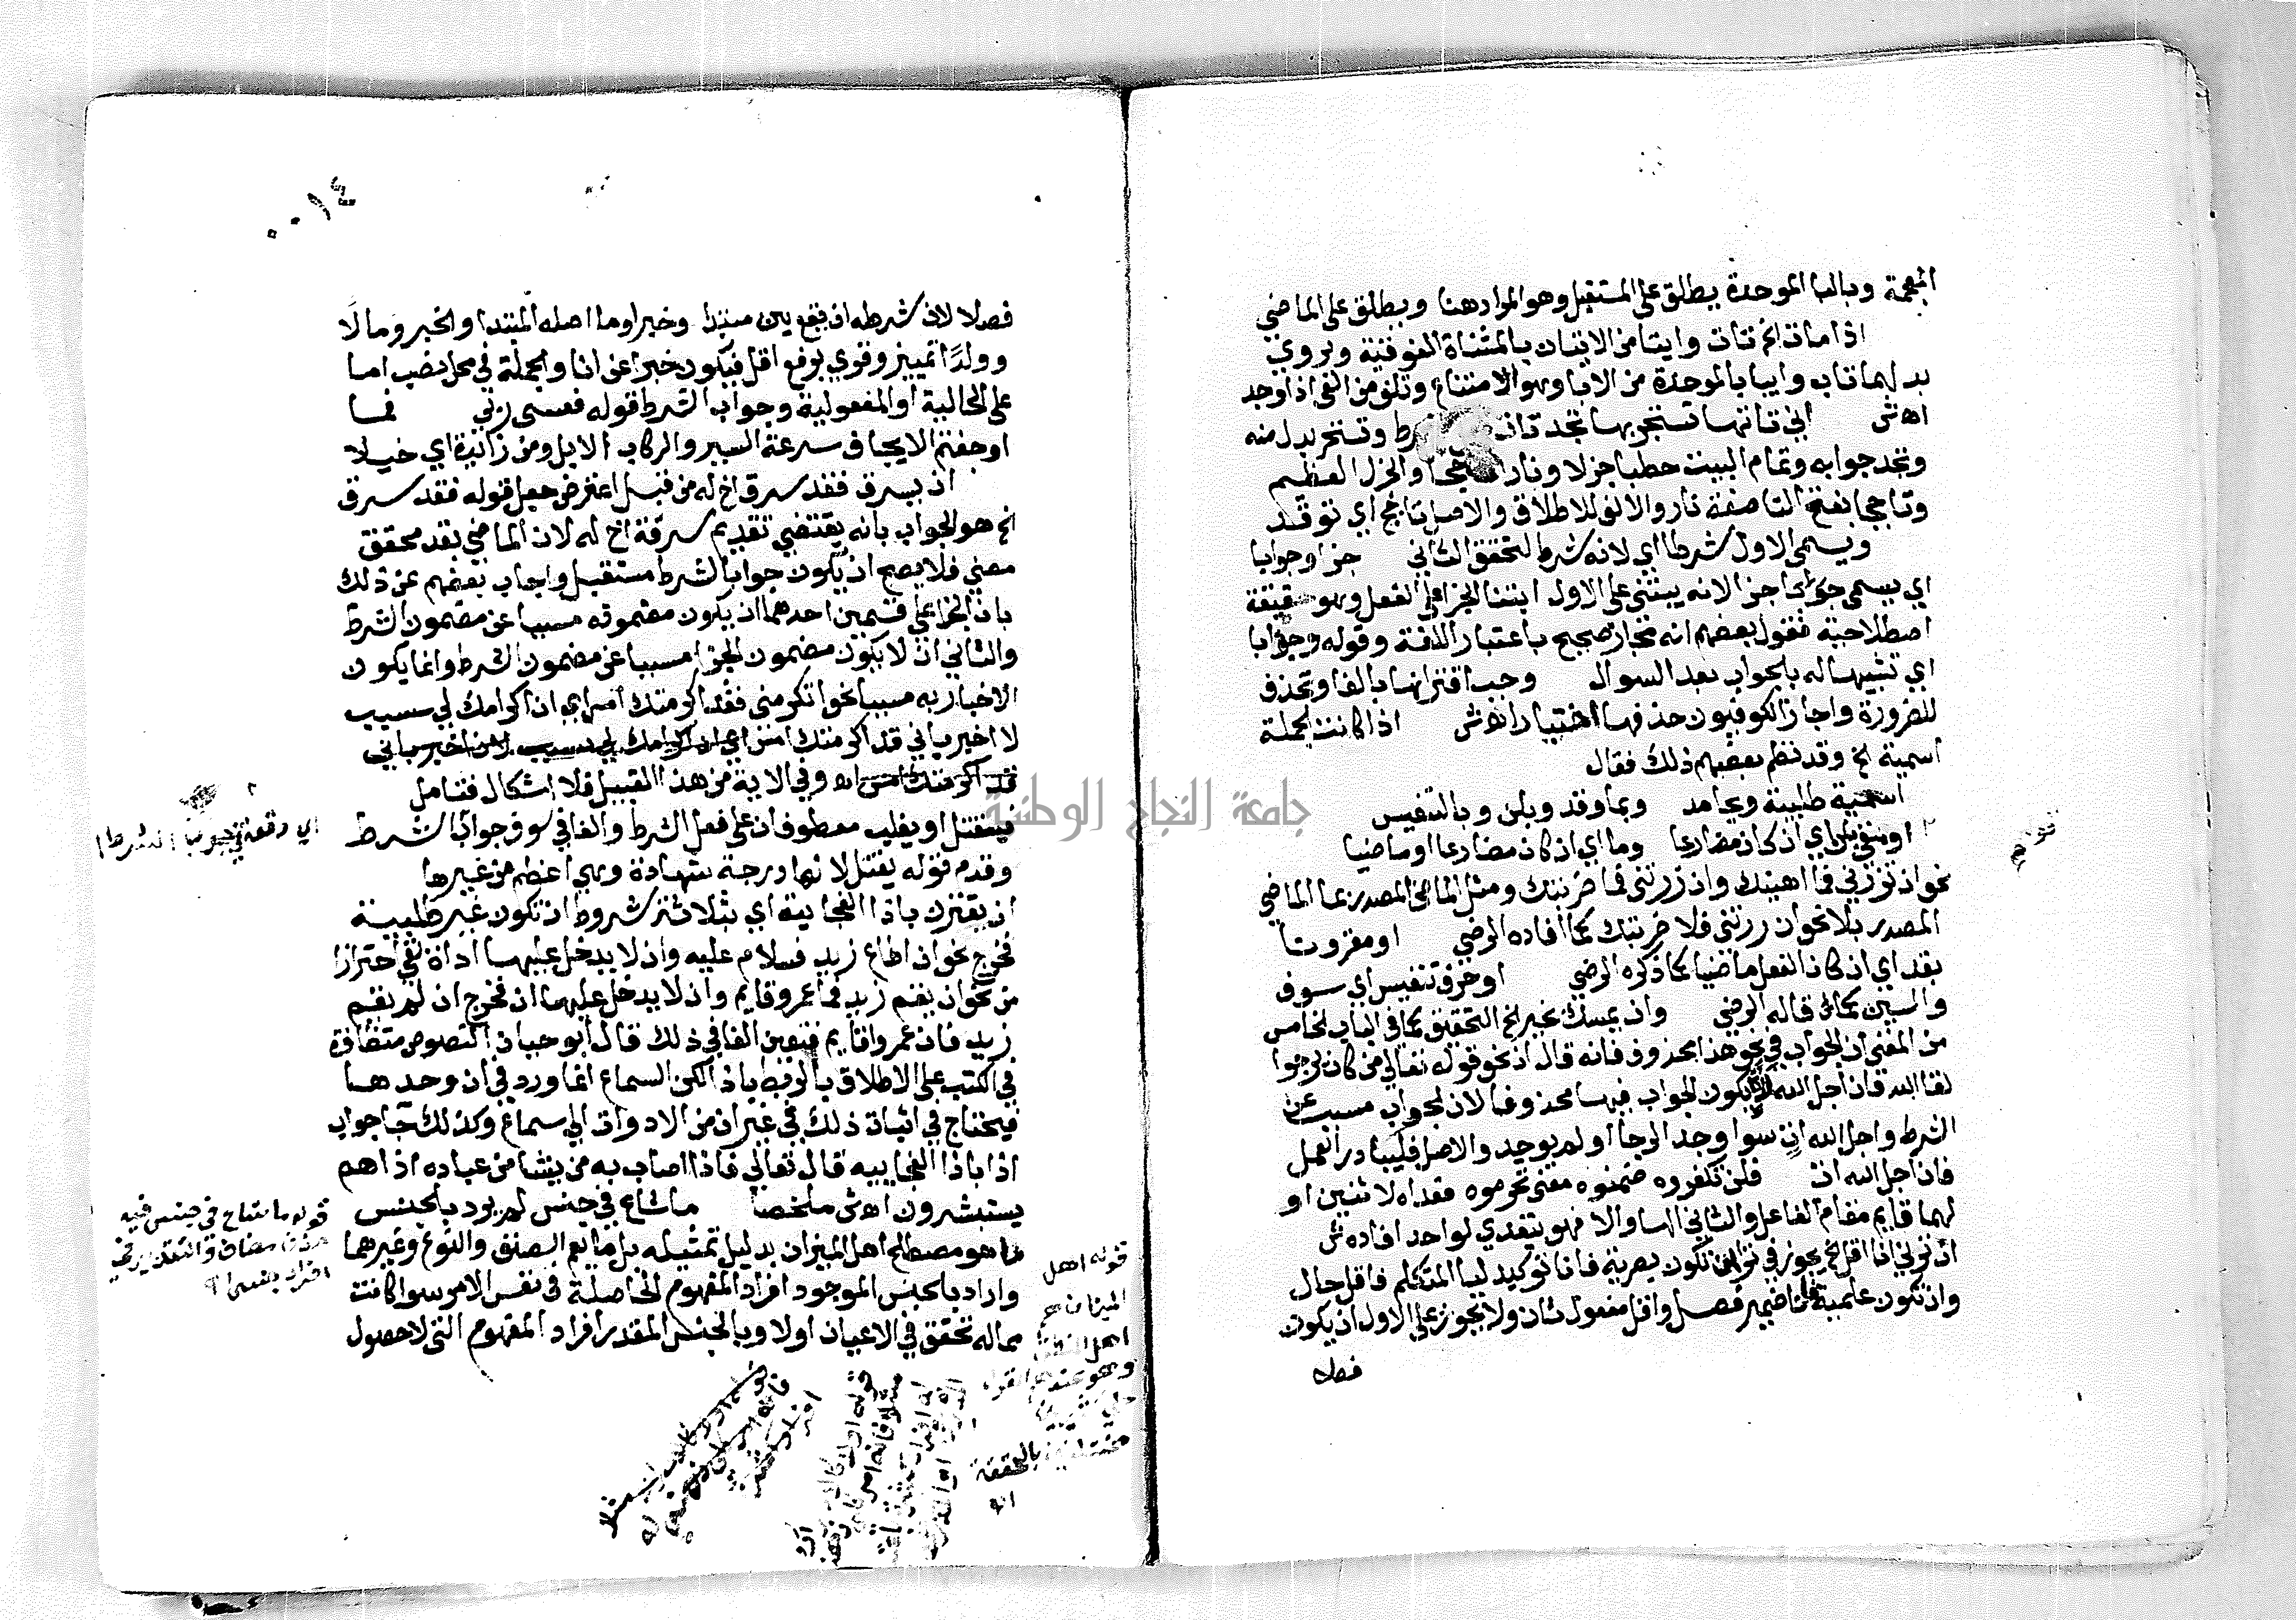 المعجمة وبالبا الموحدة يطلق على المستقبل وهو المراد هنا ويطلق على الماضي
اذا مات الخ تات وايتا من الاتيان بالمثناة الفوقية ويروى
بدلهما تاب وايبا بالموحدة من الابا وهو الامتناع وتلق من الفى اذا وجد
اه ش انى تاتها تستجر بها تجد تات وتستجر بدل منه
وتجد جوابه وتمام البيت حطبا جزلا ونارا والجزل العظيم
وتاججا بفتح التا صفة نار والالف للاطلاق والاصل تاجج اي توقد
ويسمى الاول شرطا اي لانه شرط لتحقق الثاني جزا وجوابا
اي يسمى جزا لانه يبتنى على الاول ابتنا الجزا على الفعل وهو حقيقة
اصطلاحية فقول بعضهم انه مجاز صحيح باعتبار اللغة وقوله وجوابا
اي تشبيها له بالجواب بعد السوال وجب اقترانها بالفا وتحذف
للضرورة واجاز الكوفيون حذفها اختيارا اه ش اذا كانت الجملة
اسمية الخ وقد نظم بعضهم ذلك فقال
اسمية طلبية وبجامد وبما وقد وبلن وبالتنفيس
او منفي بلن اي ان كان مضارعا وما اي ان كان مضارعا او ماضيا
نحو ان تزرني فما اهينك وان زرتني فما ضربتك ومثل الماضي المصدر بما الماضي
المصدر بلا نحو ان زرتني فلا ضربتك كما افاده الرضي او مقرونا
بقد اي ان كان الفعل ماضيا كما ذكره الرضي او حرف تنفيس اي سوف
والسين كما قاله الرضي وان يمسك بخير الخ التحقيق كما في الباب الخامس
من المغني ان الجواب في نحو هذا محذوف فانه قال ان نحو قوله تعالى من كان يرجوا
لقا الله فان اجل الله لات يكون الجواب فيها محذوفا لان الجواب مسبب عن
الشرط واجل الله ات سوا وجد الرجا او لم يوجد والاصل فليبادر العمل
فان اجل الله ات فلن تكفروه ضمنوه معنى تحرموه فعداه لاثنين او
لهما قايم مقام الفاعل والثاني الها والا فهو يتعدى لواحد افاده ش
ان ترني انا اقل الخ يجوز في ترى ان تكون بصرية فانا توكيد ليا المتكلم فاقل حال
وان تكون علمية فانا ضمير فصل واقل مفعول ثان ولا يجوز على الاول ان يكون
فصلا
٠٠١٤
فصلا لان شرطه ان يقع بين مبتدا وخبر او ما اصله المبتدا والخبر ومالا
وولدا تمييز وقري برفع اقل فيكون خبرا عن انا والجملة في محل نصب اما
على الحالية او المفعولية وجواب الشرط قوله فعسى ربي فما
اوجفتم الايجاف سرعة السير والركاب الابل ومن زائدة اي خيلا
ان يسرق فقد سرق اخ له من قبل اعترض جعل قوله فقد سرق
الخ هو الجواب بانه يقتضي تقديم سرقة اخ له لان الماضي بقد محقق
مضى فلا يصح ان يكون جوابا لشرط مستقبل واجاب بعضهم عن ذلك
بان الجزا على قسمين احدهما ان يكون مضمونه مسببا عن مضمون الشرط
والثاني ان لا يكون مضمون الجزا مسببا عن مضمون الشرط وانما يكون
الاخبار به مسببا نحو ان تكرمني فقد اكرمتك امس اي ان اكرامك لي سبب
لا اخبر باني قد اكرمتك امس اي ان اكرامك لي سبب لان اخبر باني
قد اكرمتك امس اه وفي الاية من هذا القبيل فلا اشكال فتامل
فيقتل او يغلب معطوفان على فعل الشرط والفا في سوف جواب الشرط
وقدم قوله يقتل لانها درجة شهادة وهي اعظم من غيرها
ان يقترن باذا الفجائية اي بثلاثة شروط ان تكون غير طلبية
فخرج نحو ان اطاع زيد فسلام عليه وان لا يدخل عليها اداة نفي احترازا
من نحو ان يقم زيد فما عمرو قايم وان لا يدخل عليها ان فخرج ان لم يقم
زيد فان عمروا قايم فتعين الفا في ذلك قال ابو حيان النصوص متضافرة
في الكتب على الاطلاق بالربط باذا لكن السماع انما ورد في ان وحدها
فيحتاج في اثبات ذلك في غير ان من الادوات الى سماع وكذلك جا جواب
اذا باذا الفجاييه قال تعالى فاذا اصاب به من يشا من عباده اذا هم
يستبشرون اه ش ملخصا ما شاع في جنس لم يرد بالجنس
ما هو مصطلح اهل الميزان بدليل تمثيله بل ما يعم الصنف والنوع وغيرهما
واراد بالجنس الموجود افراد المفهوم الحاصلة في نفس الامر سوا كانت
مما له تحقق في الاعيان اولا وبالجنس المقدر افراد المفهوم التي لا حصول
قوله ما شاع في جنس فيه
حذف مضاف والتقدير في
افراد جنس اه
قوله اهل
الميزان هم
جامعة النجاح الوطنية